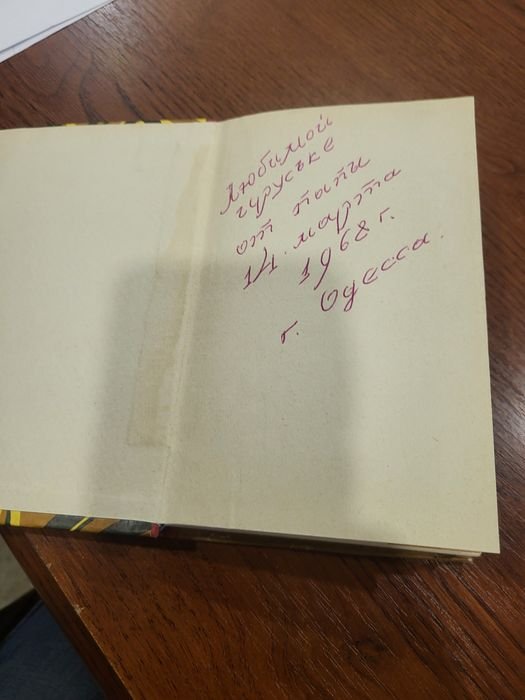 Любимой
гуруське
от папы
14. марта
1968 г.
г. Одесса.